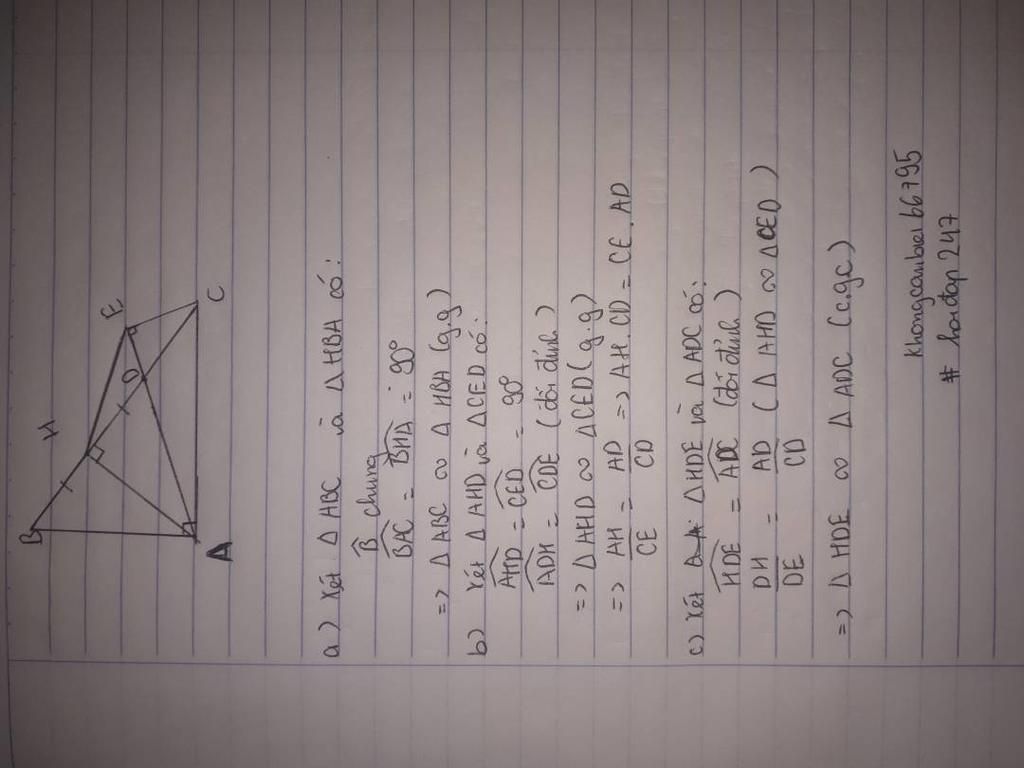 B
H
E
D
A
C
a) Xét Δ ABC và Δ HBA có:
B̂ chung
BAC = BHA = 90°
=> Δ ABC ∽ Δ HBA (g.g)
b) Xét Δ AHD và Δ CED có:
AHD = CED = 90°
ADH = CDE (đối đỉnh)
=> Δ AHD ∽ Δ CED (g.g)
=> AH/CE = AD/CD => AH.CD = CE.AD
c) Xét Δ HDE và Δ ADC có:
HDE = ADC (đối đỉnh)
DH/DE = AD/CD (Δ AHD ∽ Δ CED)
=> Δ HDE ∽ Δ ADC (c.g.c)
# hoidap247